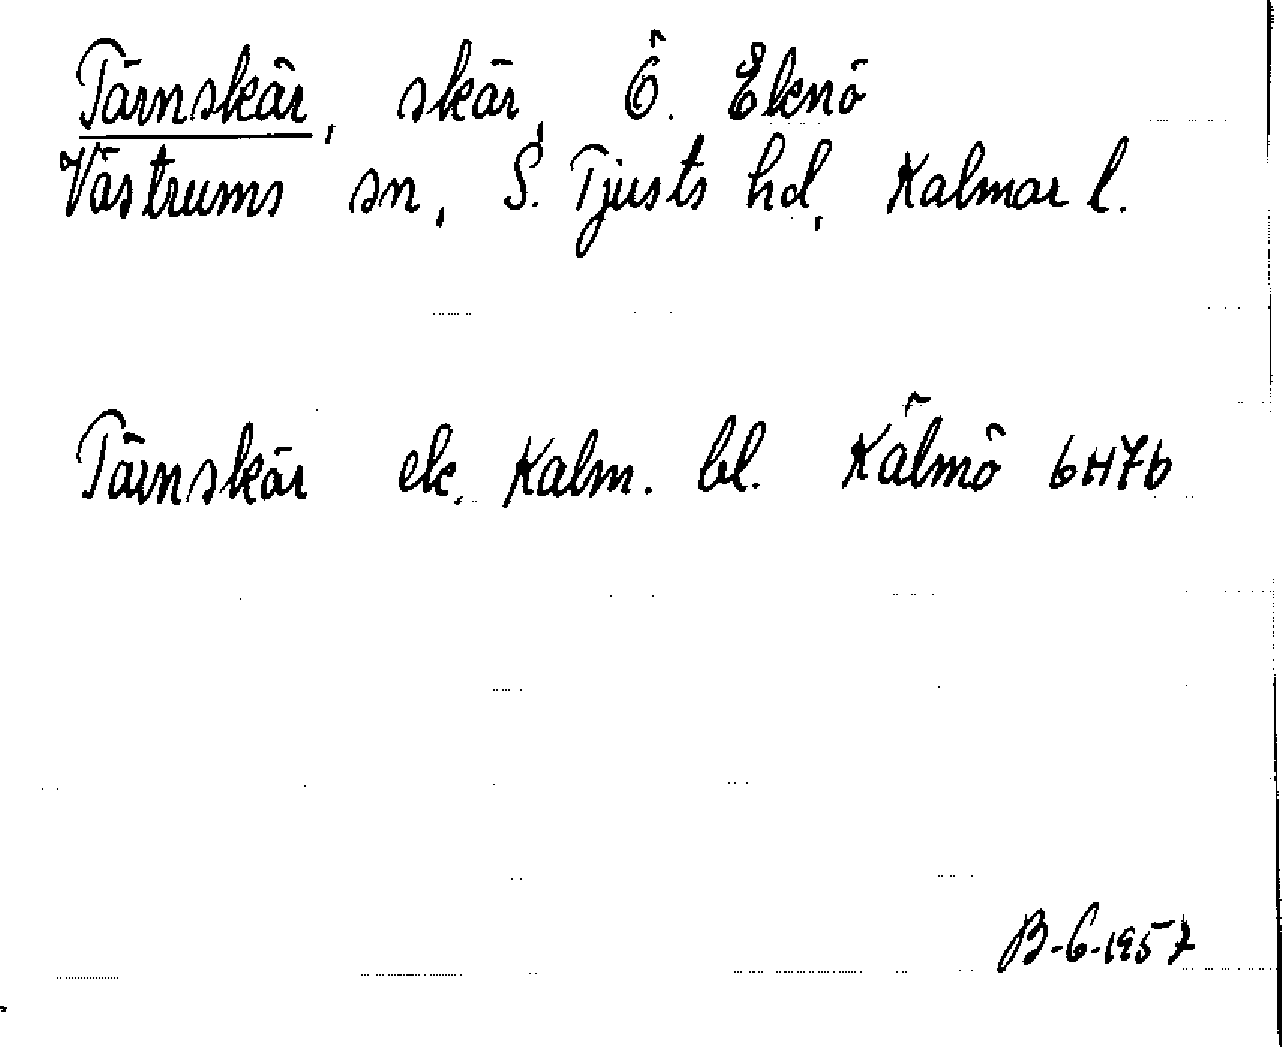 Tärnskär, skär, Ö. Eknö
Västrums sn, S. Tjusts hd, Kalmar l.
Tärnskär ek. Kalm. bl. Kälmö 6H7b
B-G-1957